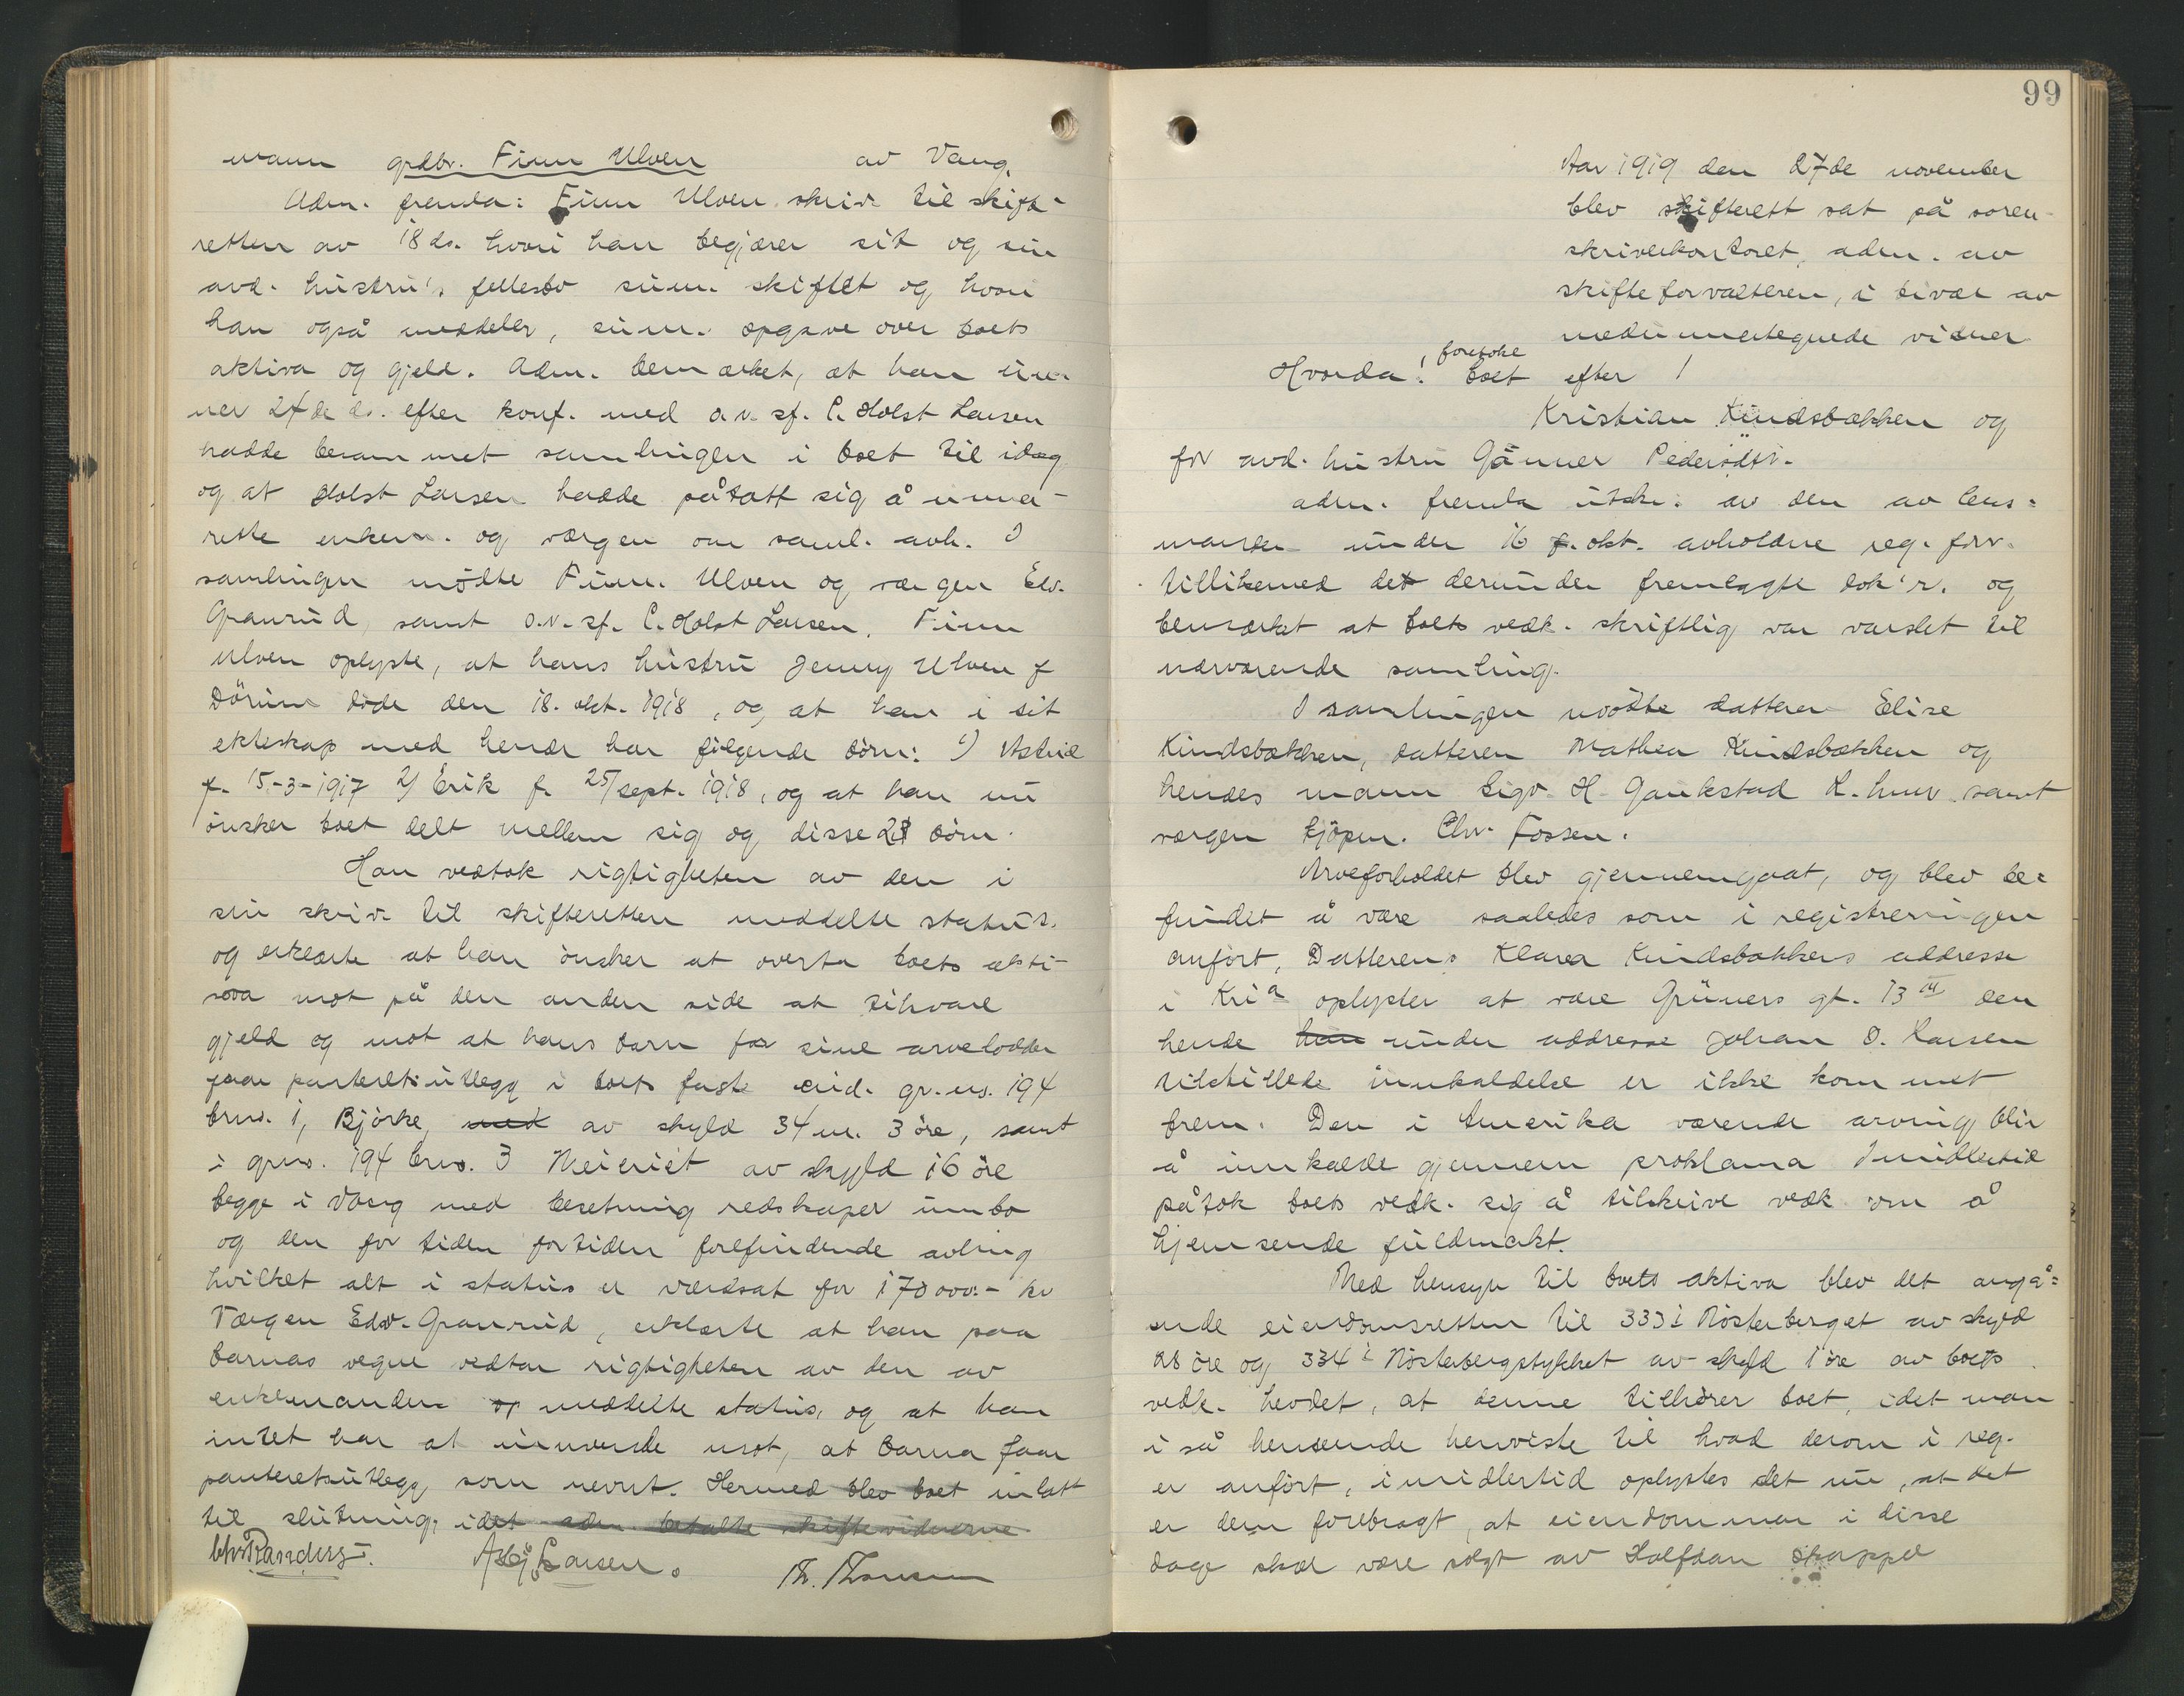 mann grdbr. Finn Ulven av Vang.
Adm. fremla: Finn Ulven skriv. til skift-
retten av 18 ds. hvori han begjærer sit og sin
avd. hustru's fellesbo sum. skiftet og hvori
han også meddeler, sum. opgave over boets
aktiva og gjeld. Adm. bemærket, at han
24de ds. efter konf. med o.r.sf. C. Holst Larsen
hadde berammet samlingen i boet til idag
og at Holst Larsen hadde påtatt sig å unner-
rette enkem. og værgen om saml. avh. I
samlingen mödte Finn Ulven og værgen Edv.
Granrud, samt o.r.sf. C. Holst Larsen. Finn
Ulven oplyste, at hans hustru Jenny Ulven f
Dörum döde den 18. okt. 1918, og at han i sit
ekteskap med hende har fölgende börn: 1) Astrid
f. 15-3-1917 2) Erik f. 25/sept. 1918, og at han nu
önsker boet delt mellem sig og disse 2 börn.
Han vedtok rigtigheten av den i
sin skriv. til skifteretten meddelte status.
og erklærte at han önsker at overta boets akti-
va mot på den anden side at tilsvare
gjeld og mot at hans barn for sine arvelodder
faar panteretsutlegg i boets faste eied. gr.no. 194
brno. 1, Björke, med av skyld 34 m. 3 öre, samt
i grno. 194 brno. 3 Meieriet av skyld 16 öre
begge i Vang med besetning redskaper innbo
og den for tiden fortiden forefindende avling
hvilket alt i status er værdsat for 170000.- kr
Værgen Edv. Granrud, erklærte at han paa
barnas vegne vedtar rigtigheten av den av
enkemanden op meddelte status, og at han
intet har at innvende mot, at barna faar
panteretsutlegg som nevnt. Hermed blev boet inlatt
til slutning, idet adm. betalte skiftevidnerne
Chr. Randers. A. Larsen. Th. Thorsen
99
Aar 1919 den 27de november
blev skifterett sat på soren-
skriverkontoret, adm. av
skifteforvalteren, i bivær av
medunnertegnede vidner
Hvorda: foretoke boet efter
Kristian Kindsbækken og
for avd. hustru Gunner Pedersdtr.
adm. fremla utskr. av den av lens-
manden under 16 f. okt. avholdne reg. forr.
tillikemed det derunder fremlagte dok'r. og
bemærket at boets vedk. skriftlig var varslet til
nærværende samling.
I samlingen mödte datteren Elise
Kindsbækken, datteren Mathea Kindsbækken og
hendes mann Sigv. H. Gaukstad K. hmr. samt
værgen kjöpm. Chr. Fossen.
Arveforholdet blev gjennemgaat, og blev be-
fundet å være saaledes som i registreringen
anfört, Datteren Klara Kindsbækkens addresse
i Kria oplystes at være Grüners gt. 13 III den
hende han under addresse Johan O. Larsen
tilstillede innkaldelse er ikke kommet
frem. Den i Amerika værende arving blir
å innkalde gjennem proklama Imidlertid
påtok boets vedk. sig å tilskrive vedk om å
hjemsende fuldmakt.
Med hensyn til boets aktiva blev det angå-
ende eiendomsretten til 333 i Nösterberget av skyld
28 öre og 334 i Nösterbergstykket av skyld 1 öre av boets
vedk. hevdet, at denne tilhörer boet, idet man
i så henseende henviste til hvad derom i reg.
er anfört, imidlertid oplystes det nu, at det
er dem forebragt, at eiendommen i disse
dage skal være solgt av Halfdan Skappel